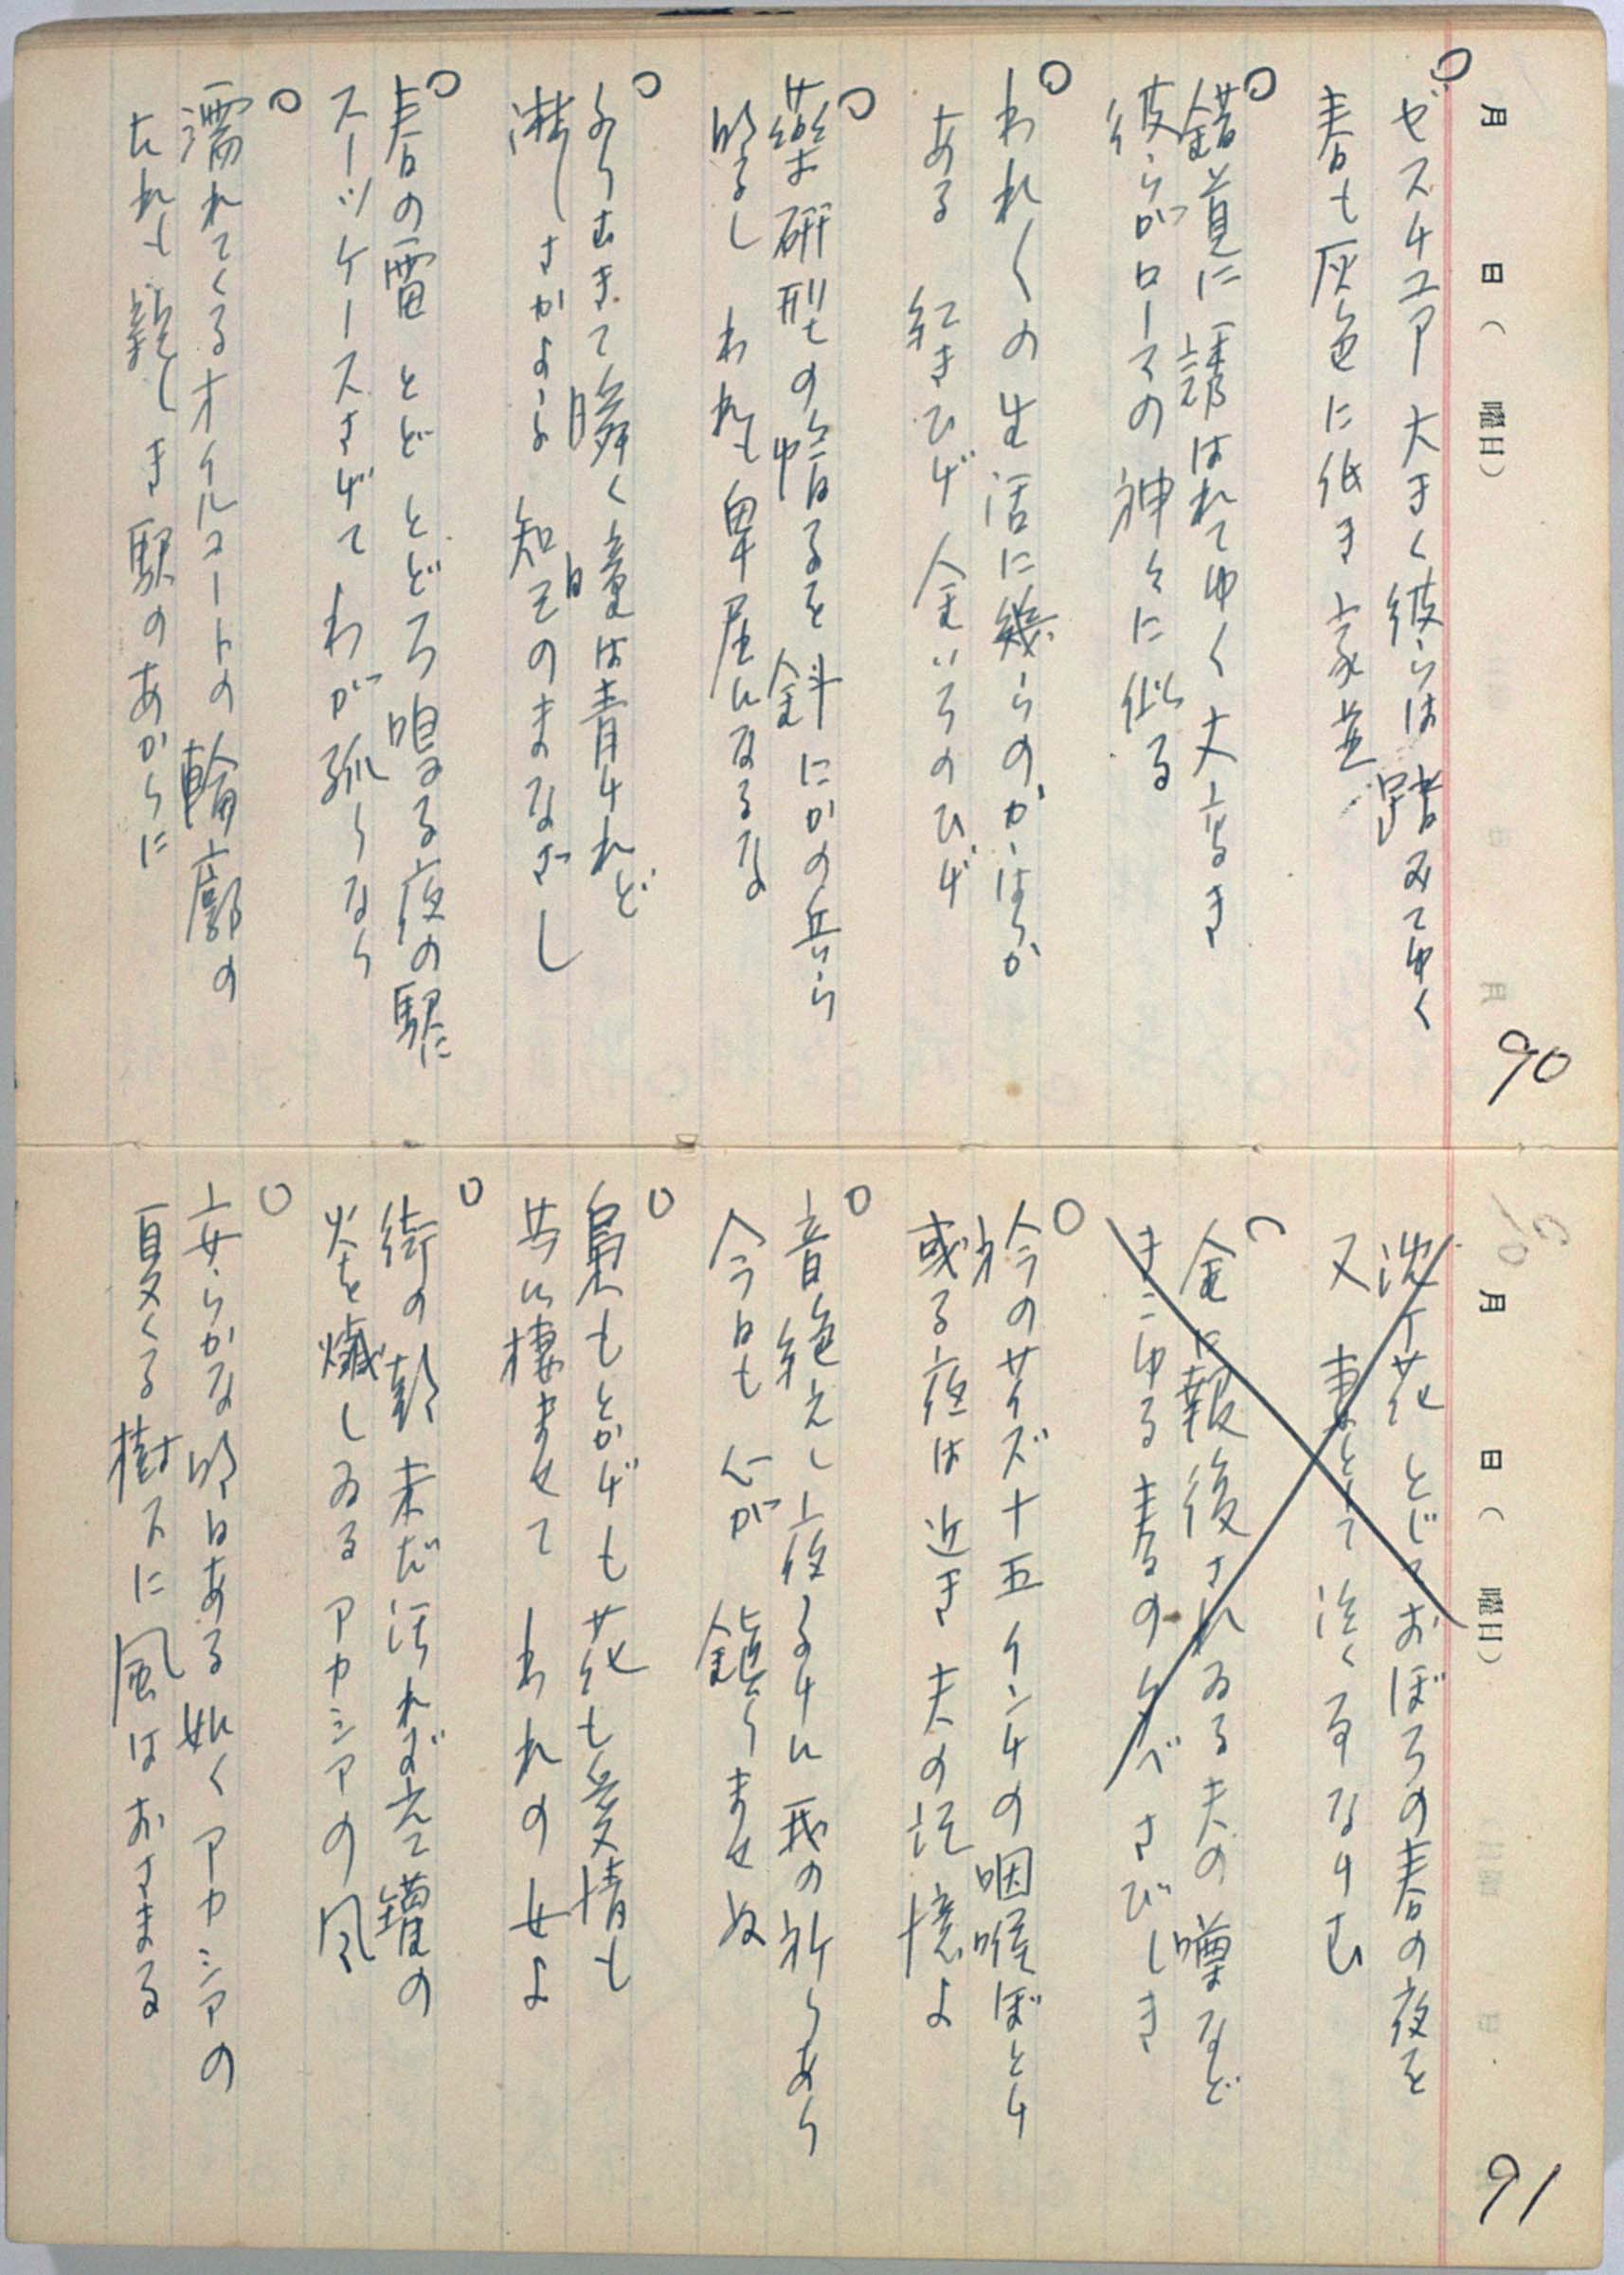 月 日( 曜日)
90
ゼスチユアー大きく彼らは踏みてゆく
春も灰色に低き家並
錯覚に誘はれてゆく丈高き
彼らがローマの神々に似る
われ〱の生活に幾らのかゝはらか
ある 紅きひげ金いろのひげ
薬研型の帽るを斜にかの兵ら
明るし われも卑屈になるな
ふりむきて瞬く瞳は青けれど
淋しさかよふ 知 そのまなざし
春の雷 とど とどろ鳴る夜の駅に
スーツケースさげてわが孤りなり
濡れてくるオイルコートの輪廓の
たれも親しき駅のあかりに
月 日( 曜日)
91
沈丁花 とじ おぼろの春の夜を
又 妻として泣く なりけむ
金 報復されゐる夫の噂など
きこゆる春の夕べさびしき
衿のサイズ十五インチの咽喉ぼとけ
或る夜は近き夫の記憶よ
音絶えし夜 るけに我の祈りあり
今日も心が鎮りませぬ
梟もとかげも花も愛情も
共に棲ませて われの女よ
街の 未だ汚れず立て鐘の
火を熾しゐるアカシアの風
安らかな明日ある如くアカシアの
夏くる樹々に風はおさまる